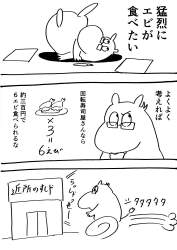 猛烈に
エビが
食べたい
よくよく
考えれば
回転寿司屋さんなら
×3
=
6えび
約三百円で
6エビ食べられるな
近所の
タタタタタ